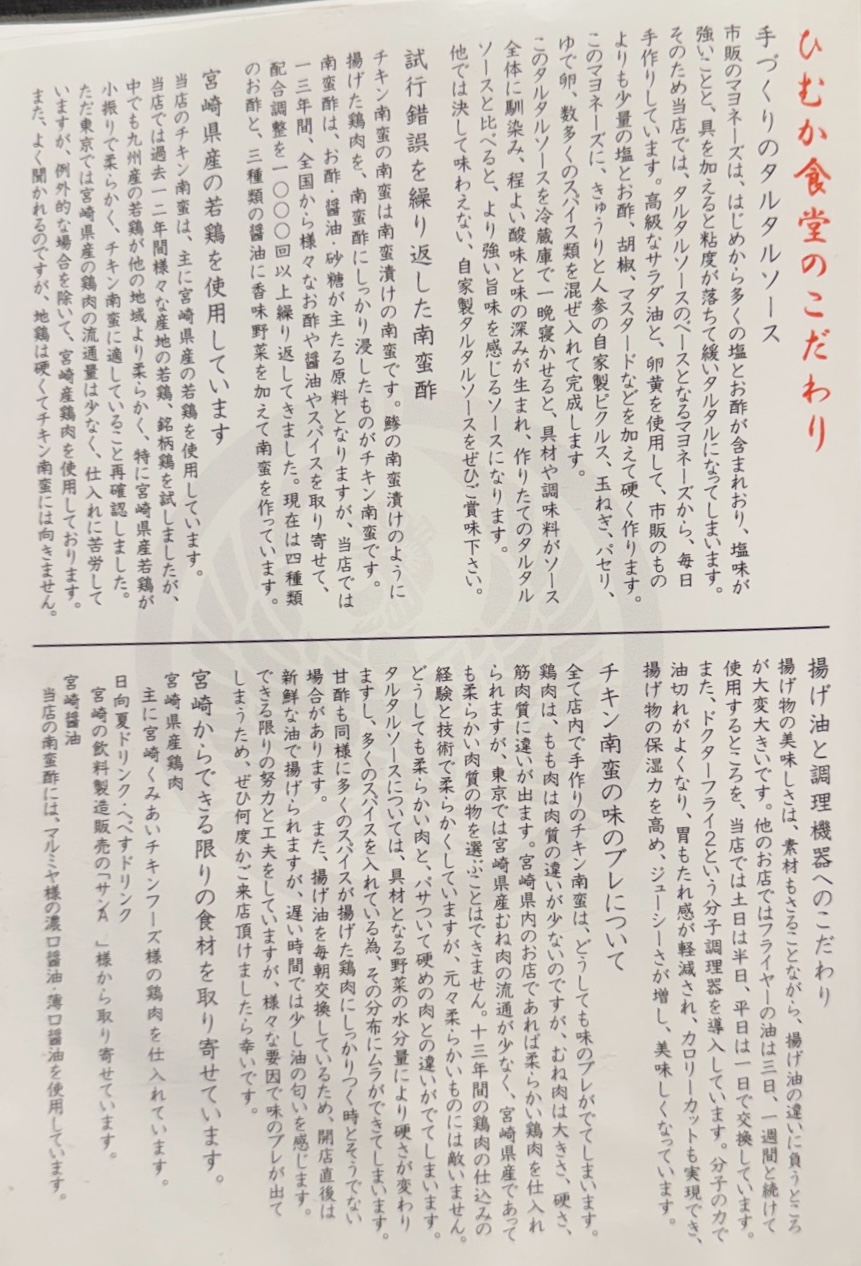 ひむか食堂のこだわり
手づくりのタルタルソース
市販のマヨネーズは、はじめから多くの塩とお酢が含まれおり、塩味が
強いことと、具を加えると粘度が落ちて緩いタルタルになってしまいます。
そのため当店では、タルタルソースのベースとなるマヨネーズから、毎日
手作りしています。高級なサラダ油と、卵黄を使用して、市販のもの
よりも少量の塩とお酢、胡椒、マスタードなどを加えて硬く作ります。
このマヨネーズに、きゅうりと人参の自家製ピクルス、玉ねぎ、パセリ、
ゆで卵、数多くのスパイス類を混ぜ入れて完成します。
このタルタルソースを冷蔵庫で一晩寝かせると、具材や調味料がソース
全体に馴染み、程よい酸味と味の深みが生まれ、作りたてのタルタル
ソースと比べると、より強い旨味を感じるソースになります。
他では決して味わえない、自家製タルタルソースをぜひご賞味下さい。
試行錯誤を繰り返した南蛮酢
チキン南蛮の南蛮は南蛮漬けの南蛮です。鯵の南蛮漬けのように
揚げた鶏肉を、南蛮酢にしっかり浸したものがチキン南蛮です。
南蛮酢は、お酢・醤油・砂糖が主たる原料となりますが、当店では
一三年間、全国から様々なお酢や醤油やスパイスを取り寄せて、
配合調整を一〇〇〇回以上繰り返してきました。現在は四種類
のお酢と、三種類の醤油に香味野菜を加えて南蛮を作っています。
宮崎県産の若鶏を使用しています
当店のチキン南蛮は、主に宮崎県産の若鶏を使用しています。
当店では過去一二年間様々な産地の若鶏、銘柄鶏を試しましたが、
中でも九州産の若鶏が他の地域より柔らかく、特に宮崎県産若鶏が
小振りで柔らかく、チキン南蛮に適していること再確認しました。
ただ東京では宮崎県産の鶏肉の流通量は少なく、仕入れに苦労して
いますが、例外的な場合を除いて、宮崎産鶏肉を使用しております。
また、よく聞かれるのですが、地鶏は硬くてチキン南蛮には向きません。
揚げ油と調理機器へのこだわり
揚げ物の美味しさは、素材もさることながら、揚げ油の違いに負うところ
が大変大きいです。他のお店ではフライヤーの油は三日、一週間と続けて
使用するところを、当店では土日は半日、平日は一日で交換しています。
また、ドクターフライ2という分子調理器を導入しています。分子の力で
油切れがよくなり、胃もたれ感が軽減され、カロリーカットも実現でき、
揚げ物の保湿力を高め、ジューシーさが増し、美味しくなっています。
チキン南蛮の味のブレについて
全て店内で手作りのチキン南蛮は、どうしても味のブレがでてしまいます。
鶏肉は、もも肉は肉質の違いが少ないのですが、むね肉は大きさ、硬さ、
筋肉質に違いが出ます。宮崎県内のお店であれば柔らかい鶏肉を仕入れ
られますが、東京では宮崎県産むね肉の流通が少なく、宮崎県産であって
も柔らかい肉質の物を選ぶことはできません。十三年間の鶏肉の仕込みの
経験と技術で柔らかくしていますが、元々柔らかいものには敵いません。
どうしても柔らかい肉と、パサついて硬めの肉との違いがでてしまいます。
タルタルソースについては、具材となる野菜の水分量により硬さが変わり
ますし、多くのスパイスを入れている為、その分布にムラができてしまいます。
甘酢も同様に多くのスパイスが揚げた鶏肉にしっかりつく時とそうでない
場合があります。また、揚げ油を毎朝交換しているため、開店直後は
新鮮な油で揚げられますが、遅い時間では少し油の匂いを感じます。
できる限りの努力と工夫をしていますが、様々な要因で味のブレが出て
しまうため、ぜひ何度かご来店頂けましたら幸いです。
宮崎からできる限りの食材を取り寄せています。
宮崎県産鶏肉
主に宮崎くみあいチキンフーズ様の鶏肉を仕入れています。
日向夏ドリンク・へべすドリンク
宮崎の飲料製造販売の「サンA 」様から取り寄せています。
宮崎醤油
当店の南蛮酢には、マルミヤ様の濃口醤油・薄口醤油を使用しています。